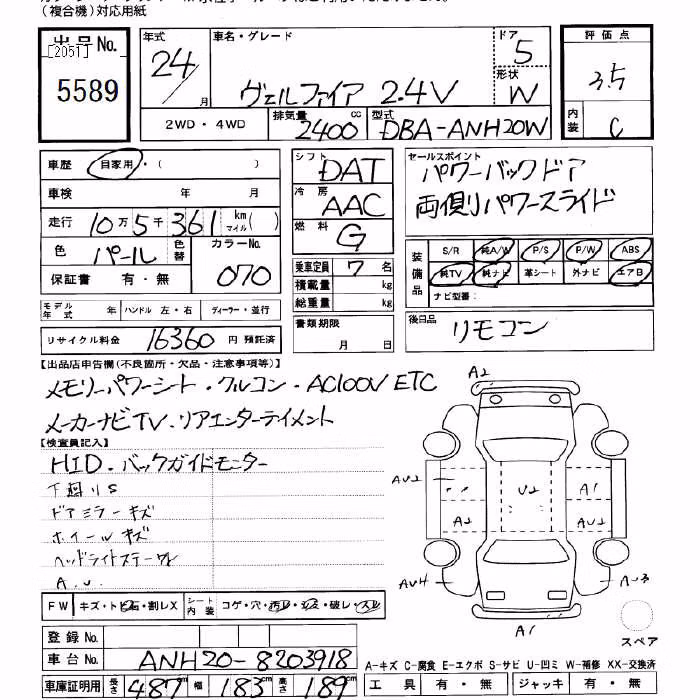 (複合機)対応用紙
出品No.
[2051]
5589
年式 24/ 月
車名・グレード
ヴェルファイア 2.4V
ドア 5
形状 W
評価点 3.5
内装 C
2WD・4WD
排気量 2400 cc
型式 DBA-ANH20W
車歴 自家用・( )
車検 年 月
走行 10万5千361 km マイル( )
色 パール 色替 カラーNo. 070
保証書 有・無
モデル年式 年 ハンドル 左・右 ディーラー・並行
リサイクル料金 16360 円 預託済
シフト DAT
冷房 AAC
燃料 G
乗車定員 7 名
積載量 kg
総重量 kg
書類期限 月 日
セールスポイント
パワーバックドア
両側リパワースライド
装備品 S/R 純A/W P/S P/W ABS
純TV 純ナビ 革シート 外ナビ エアB
ナビ型番:
後日品 リモコン
【出品店申告欄(不良箇所・欠品・注意事項等)】
メモリーパワーシート・クルコン・AC100V ETC
メーカーナビTV・リアエンターテイメント
【検査員記入】
HID・バックガイドモニター
下廻りS
ドアミラーキズ
ホイールキズ
A.U.
A2
AU2
A2
U2
A1
AU2
AU4
AU3
A1
スペア
FW キズ・トビ石・割レX シート内装 コゲ・穴・汚レ・破レ・スレ
登録No.
車台No. ANH20-8203918
車庫証明用 長さ 487 cm 幅 183 cm 高さ 189 cm
A-キズ C-腐食 E-エクボ S-サビ U-凹ミ W-補修 XX-交換済
工具 有・無 ジャッキ 有・無